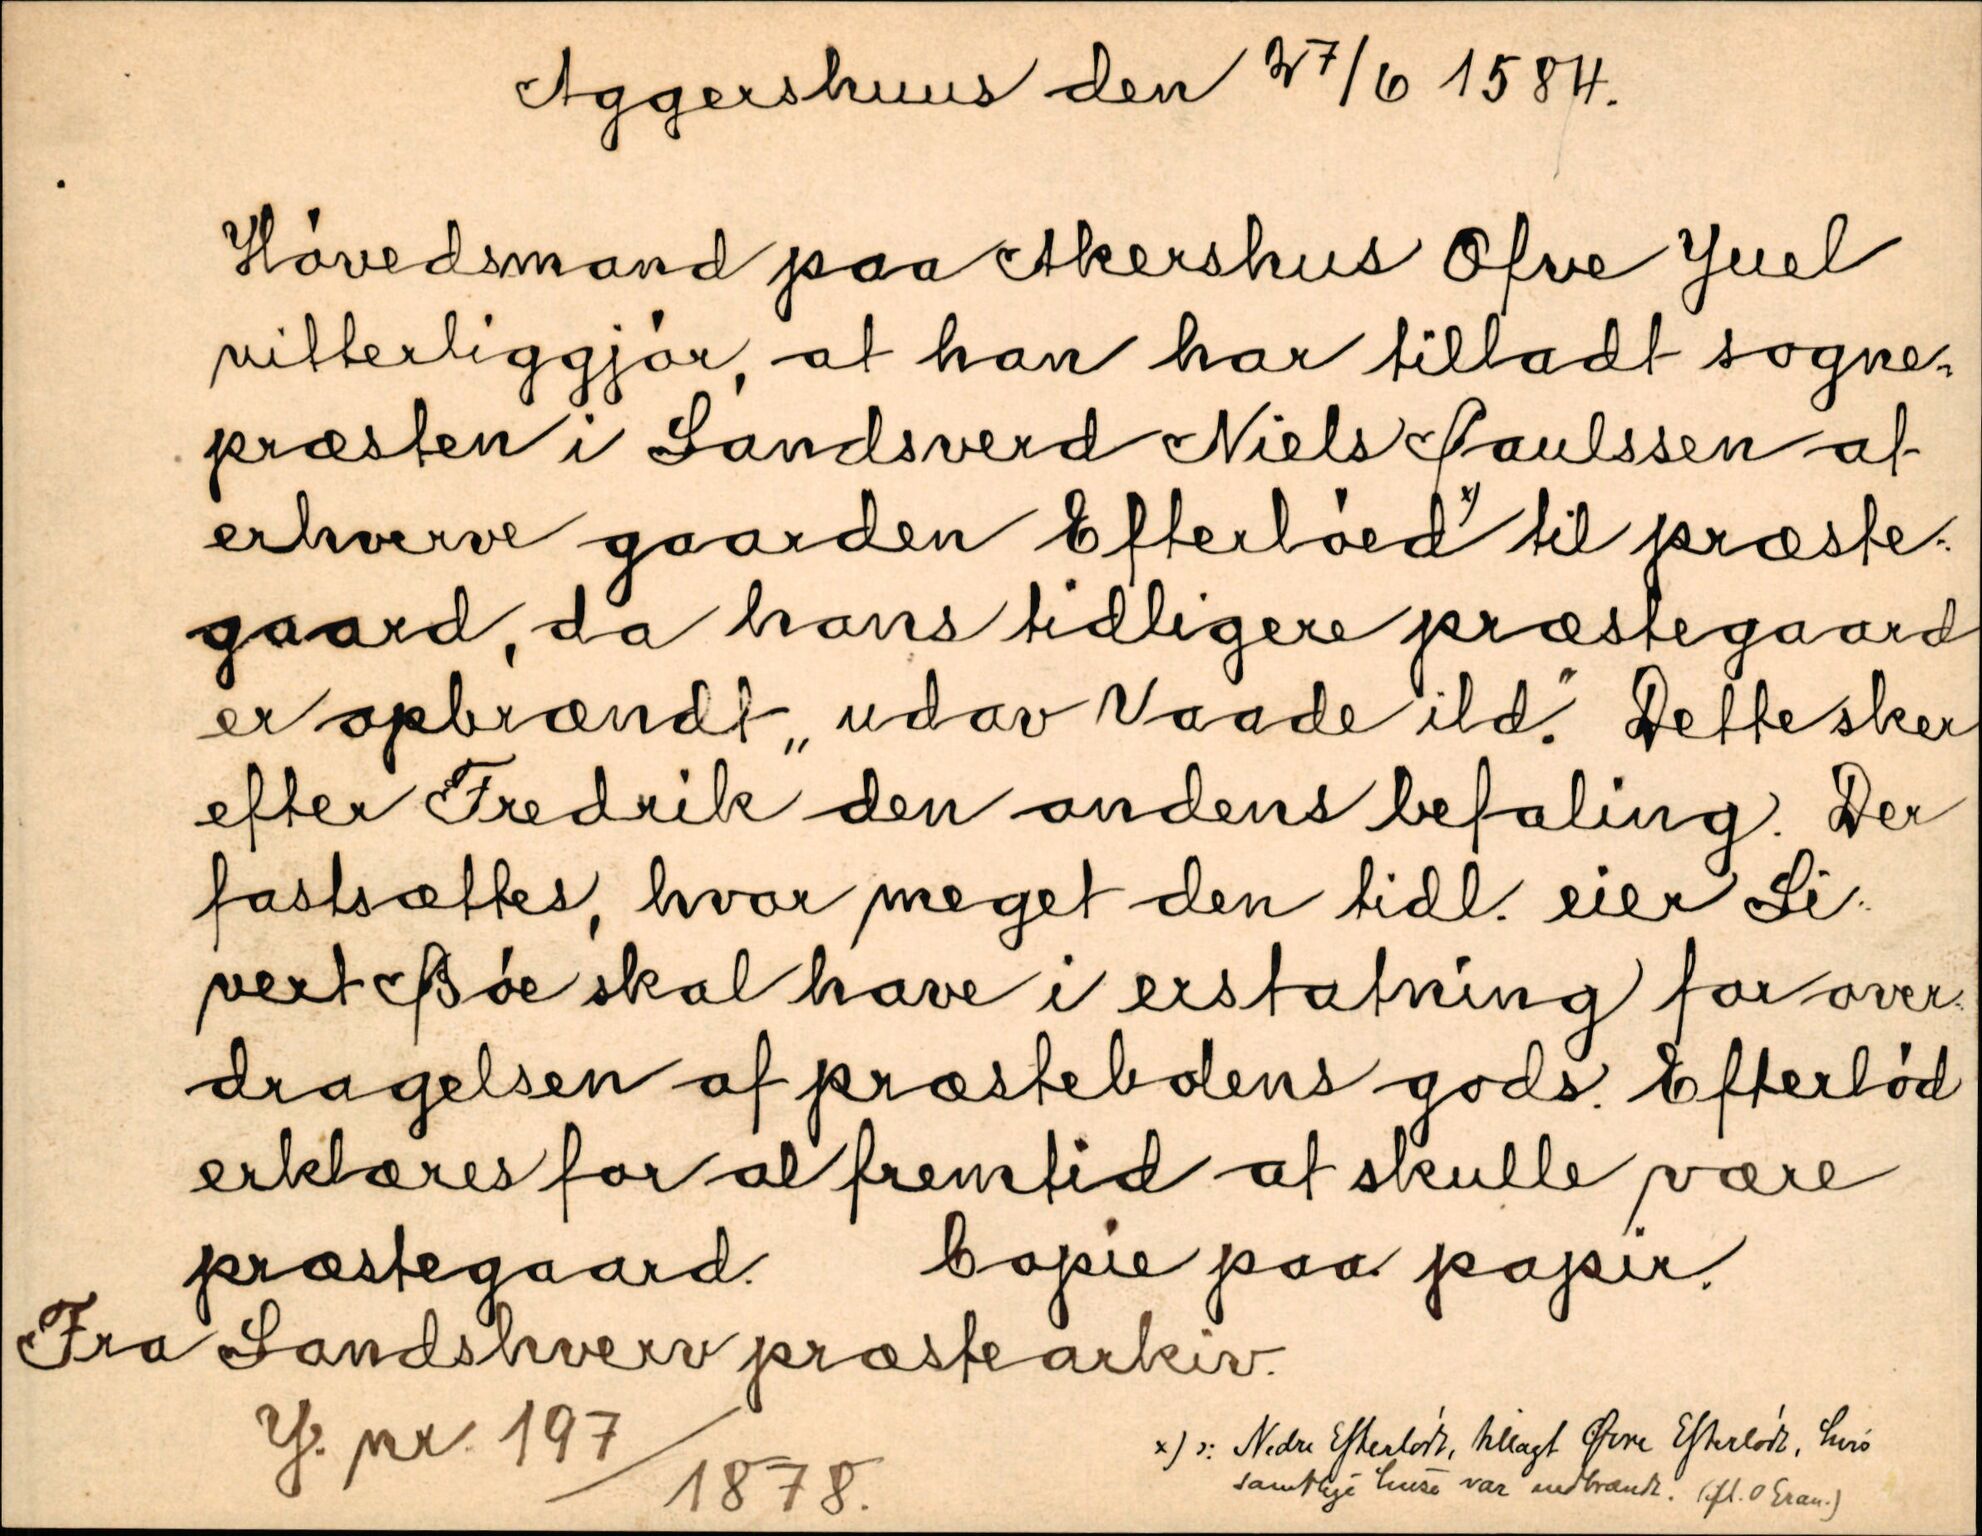 Aggershuus den 27/6 1584.
Hóvedsmand paa Akershus Ofve Juel
vitterliggjór, at han har tilladt sogne-
præsten i Landsverd Niels Paulssen at
erhverve gaarden Efterlóed x) til præste-
gaard, da hans tidligere præstegaard
er opbrændt „udav Vaade ild." Dette sker
efter Fredrik den andens befaling. Der
fastsættes, hvor meget den tidl. eier Si-
vert Bóe skal have i erstatning for over-
dragelsen af præstebolens gods. Efterlód
erklæres for al fremtid at skulle være
præstegaard. Copie paa papir.
Fra Landshverv præstearkiv.
J. nr. 197/1878.
x) ɔ: Nedre Efterlódt, tillagt Øvre Efterlódt, hvis
samtlige huse var nedbrændt. (ifl. O Eran.)